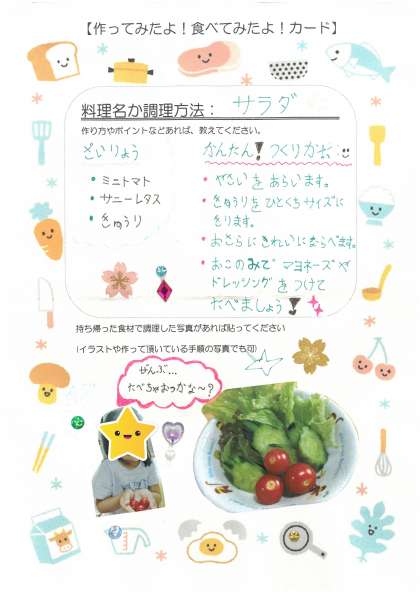 【作ってみたよ！食べてみたよ！カード】
料理名か調理方法： サラダ
作り方やポイントなどあれば、教えてください。
ざいりょう
・ミニトマト
・サニーレタス
・きゅうり
かんたん！つくりかた
・やさいをあらいます。
・きゅうりをひとくちサイズに
きります。
・おさらにきれいにならべます。
・おこのみでマヨネーズや
ドレッシングをつけて
たべましょう！
持ち帰った食材で調理した写真があれば貼ってください
(イラストや作って頂いている手順の写真でも可)
ぜんぶ…
たべちゃおっかな～？